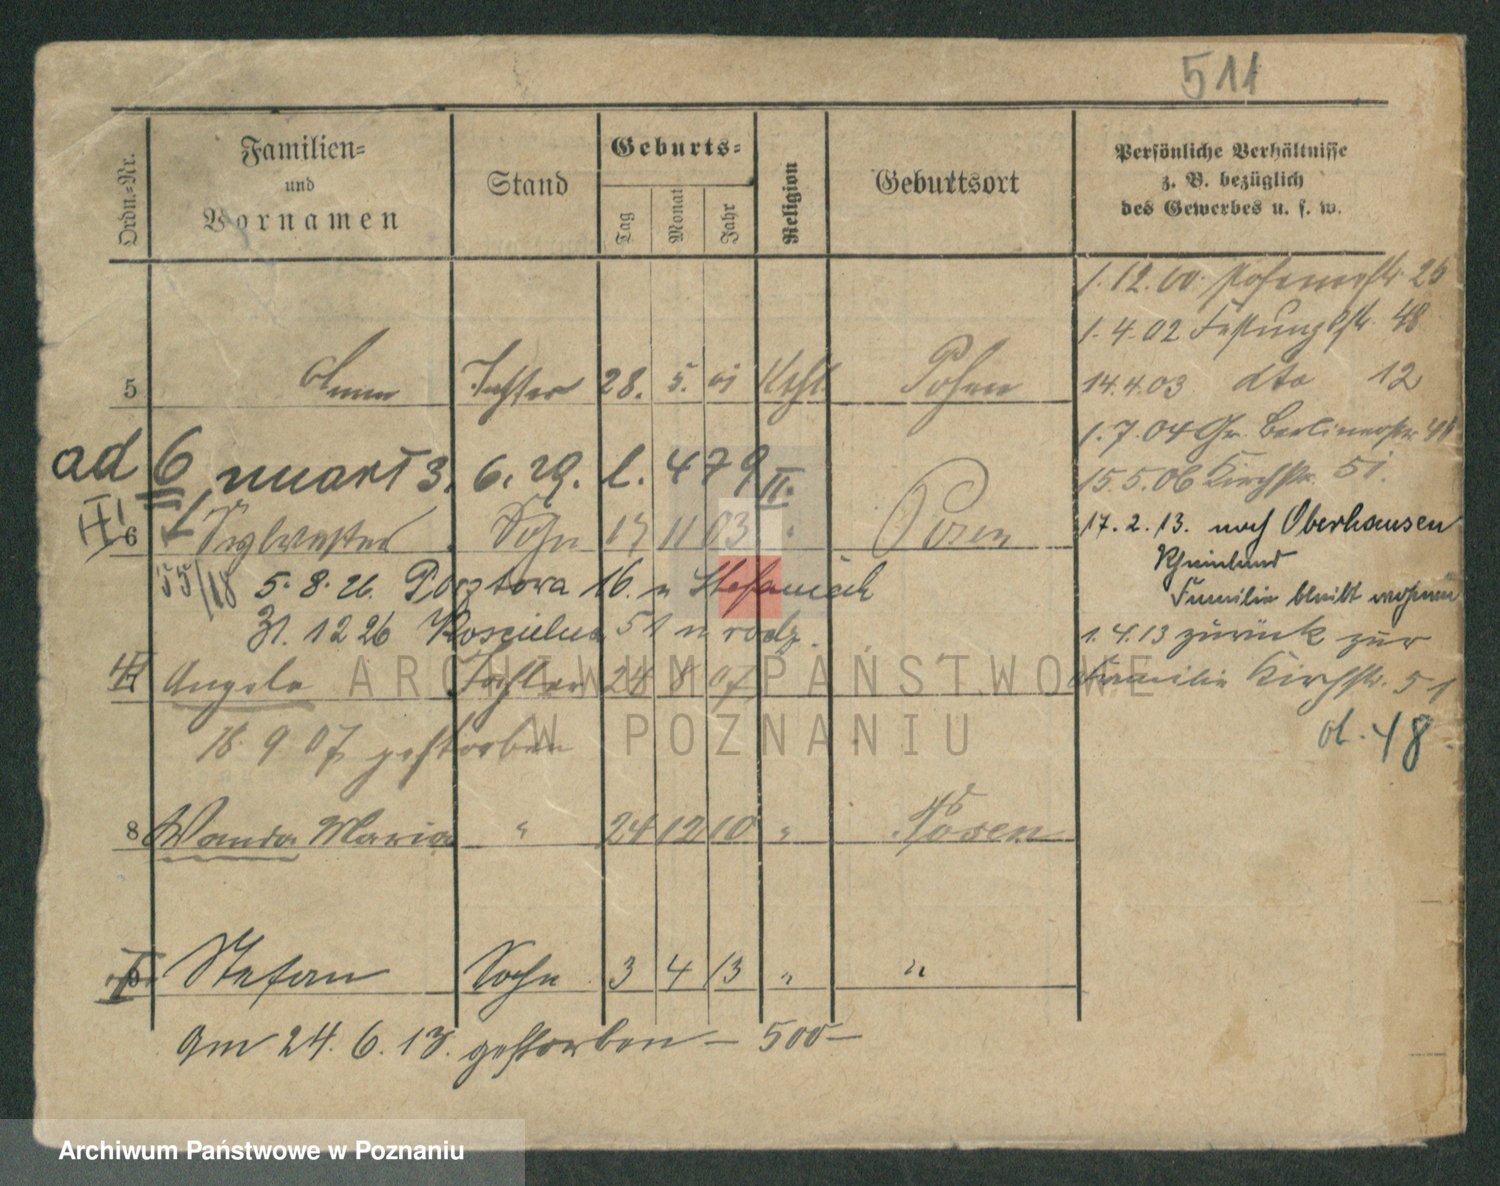 511
Ordn.-Nr.
Familien-
und
Vornamen
Stand
Geburts-
Tag
Monat
Jahr
Religion
Geburtsort
Persönliche Verhältnisse
z. B. bezüglich
des Gewerbes u. s. w.
1.12.00. Posenerstr. 25
1.4.02 Festungsstr. 48
5 Anna Tochter 28. 5. 01 Kthl Posen
14.4.03 dto 12
1.7.04 Gr. Berlinerstr.
ad 6 3. 6. 29. l. 479 II.
15.5.06 Kirchstr. 51.
6 Sylvester Sohn 17 11 03 " Posen
17.2.13. nach Oberhausen
Rheinland
55/18 5.8.26. Pocztowa 16. u
Familie bleibt wohnen
31.12 26 51 u rodz.
1.4.13 zurück zur
Angela Tochter 24 8 07
Familie Kirchstr. 51
18.9 07 gestorben
d. 48.
8 Wanda Maria " 24 12 10 " Posen
Stefan Sohn 3 4 13 " "
am 24. 6. 13. gestorben – 500 –
ARCHIWUM PAŃSTWOWE
W POZNANIU
Archiwum Państwowe w Poznaniu